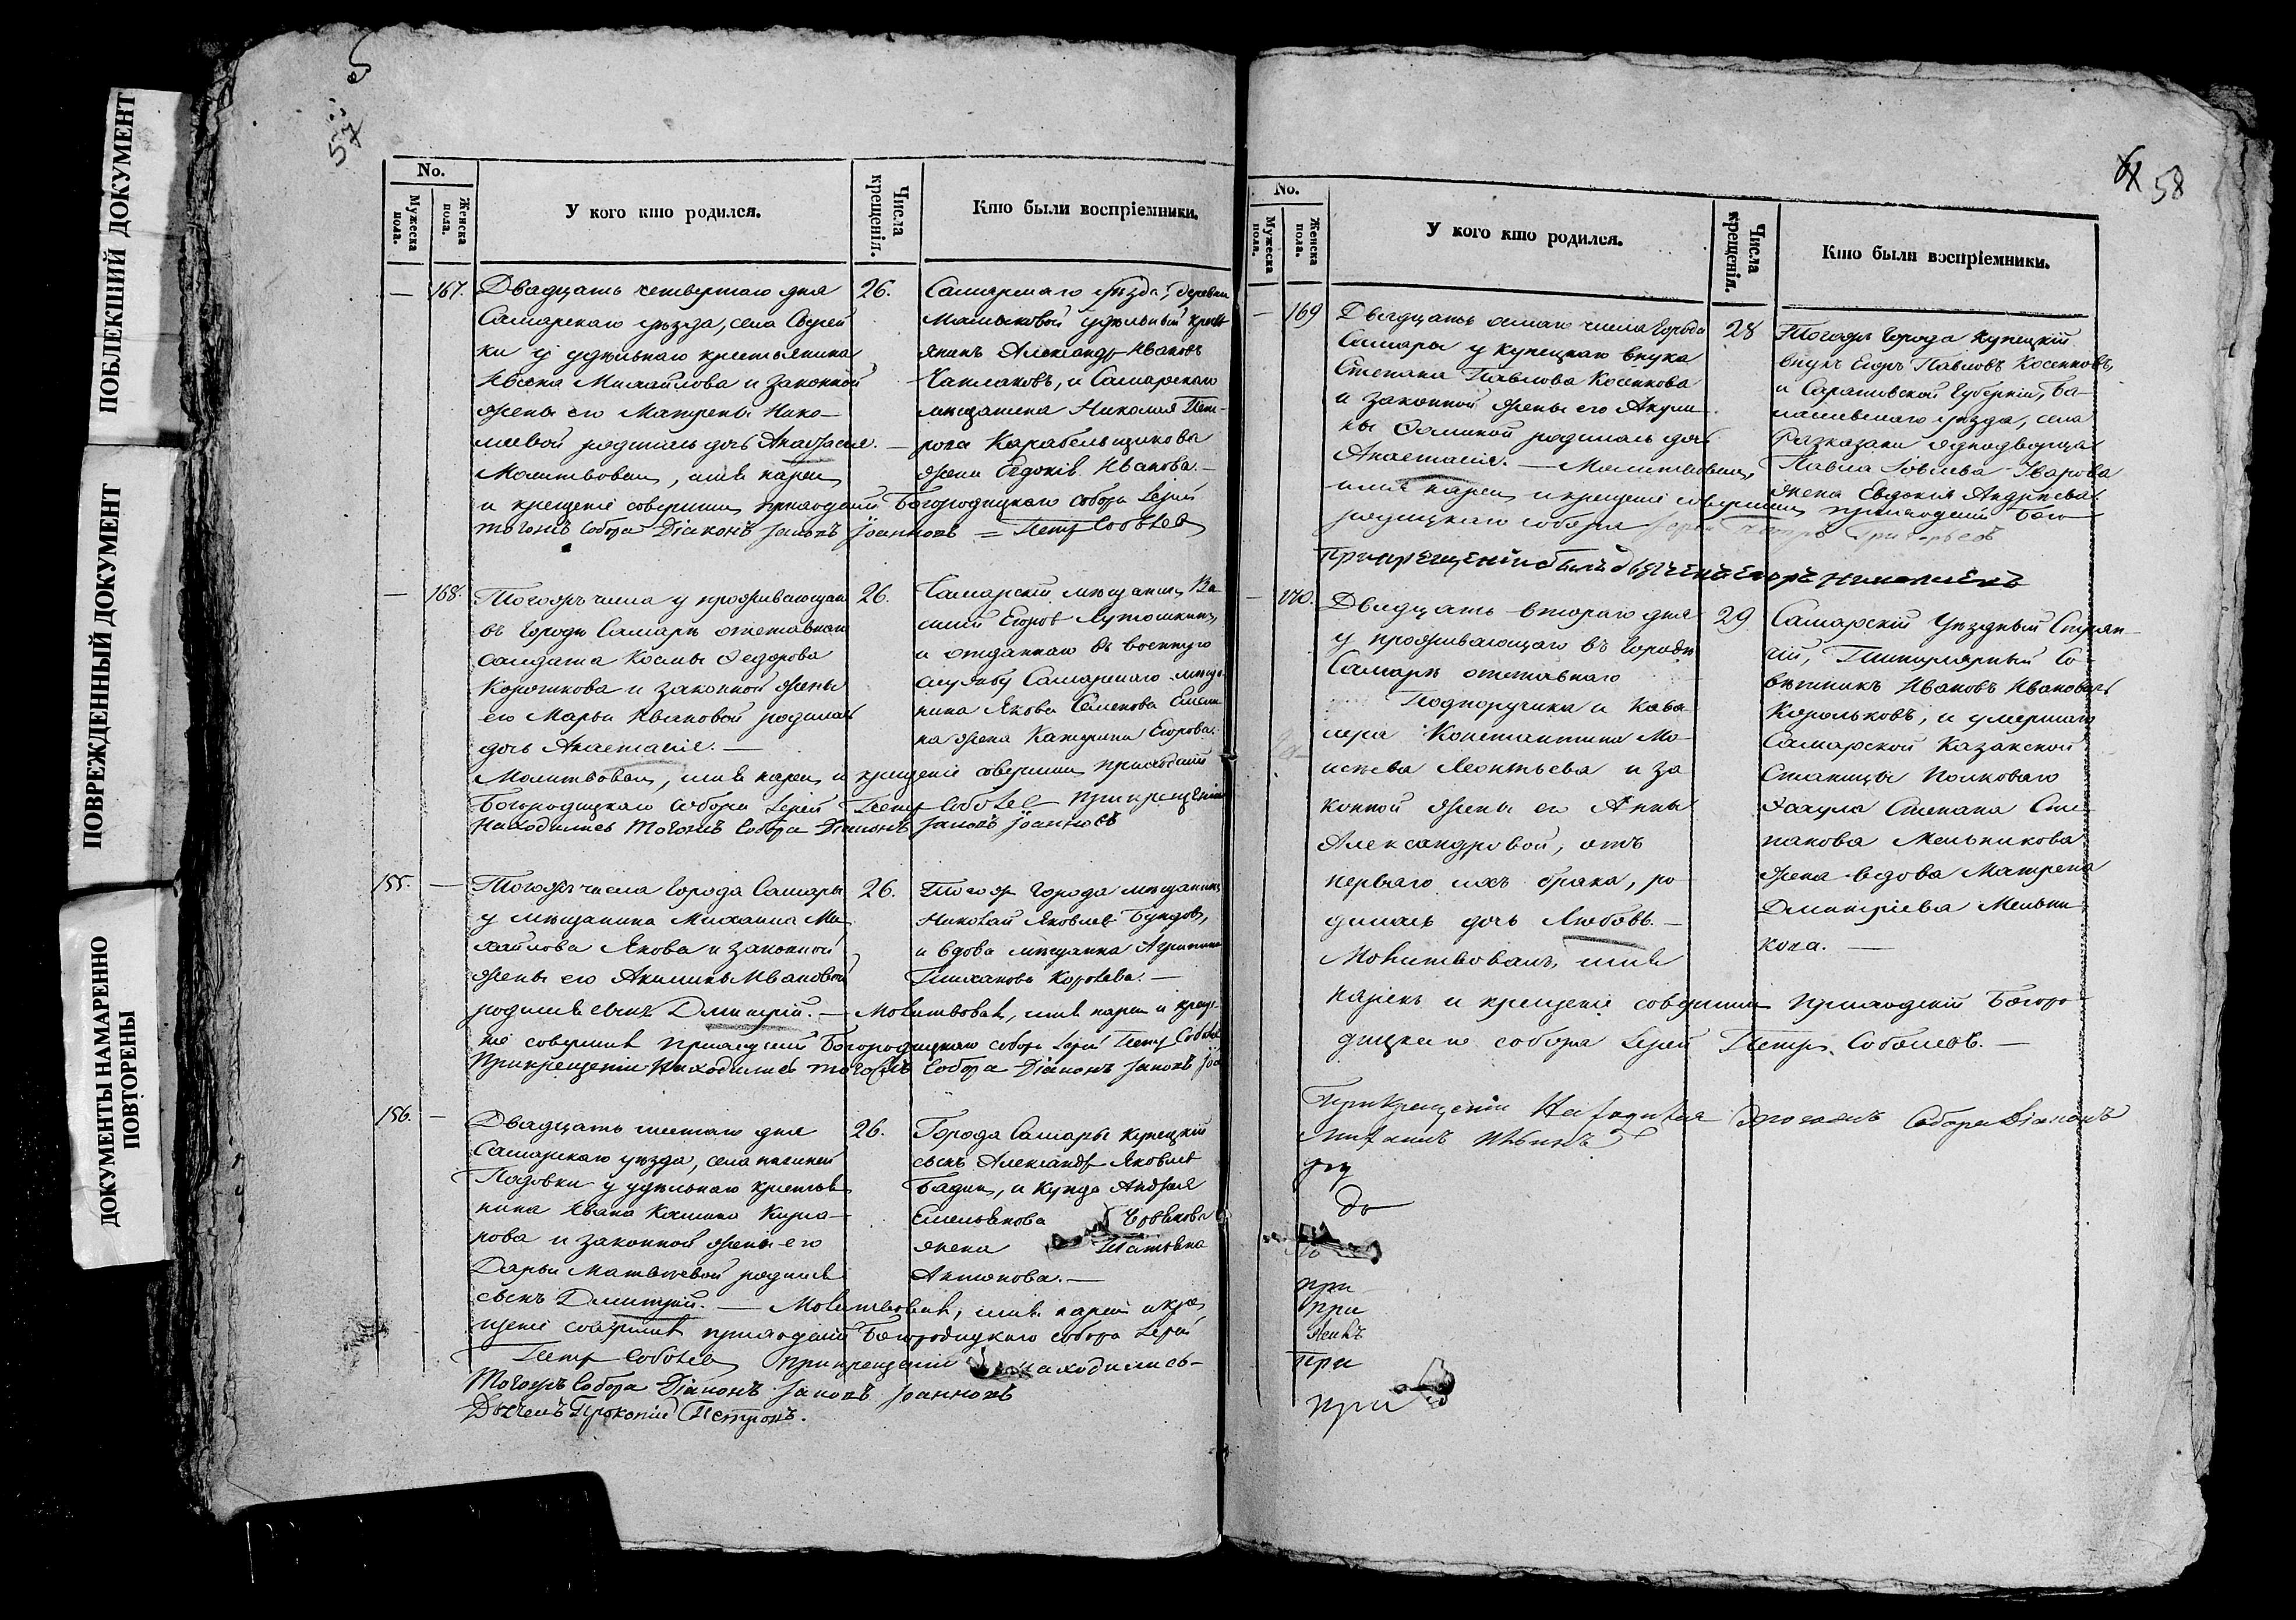 ПОБЛЕКШИЙ ДОКУМЕНТ
ПОВРЕЖДЕННЫЙ ДОКУМЕНТ
ДОКУМЕНТЫ НАМАРЕННО
ПОВТОРЕНЫ
57
No.
Мужеска пола.
Женска пола.
У кого кто родился.
Числа крещенія.
Кто были воспріемники.
— 167. Двадцать четвертаго дня
Самарскаго уѣзда, села
ки у удѣльнаго крестьянина
Михайлова и законной
жены его Матрены Нико-
лаевой родилась дочь Анастасія. —
Молитвовалъ, имя нарекъ
и крещеніе совершилъ приходскій Богородицкаго собора Іерей
тогожъ Собора Діаконъ Іаковъ Іоанновъ = Петръ Соболев
26. Самарскаго уѣзда, деревни
удѣльный кресть
янинъ Александръ Ивановъ
Чаплаковъ, и Самарскаго
мѣщанина Николая Пет-
рова Карабельщикова
жена Евдокія Иванова. —
— 168. Тогожъ числа у проживающаго
въ городѣ Самарѣ отставнаго
солдата Космы Федорова
Корошкова и законной жены
его Марьи Ивановой родилась
дочь Анастасія. —
Молитвовалъ, имя нарекъ и крещеніе совершилъ приходскій
Богородицкаго собора Іерей Петръ Соболев при крещеніи
находились тогожъ Собора Діаконъ Іаковъ Іоанновъ
26. Самарскій мѣщанинъ Ва-
силій Егоров Лутошкинъ,
и отданнаго въ военную
службу Самарскаго мѣща
нина Якова Семенова
на жена Катерина Егорова.
155. — Тогожъ числа города Самары
у мѣщанина Михаила Ми-
хайлова Якова и законной
жены его Акилины Ивановой
родился сынъ Димитрій. — Молитвовалъ, имя нарекъ и креще-
ніе совершилъ приходскій Богородицкаго собора Іерей Петръ Соболев
При крещеніи находились тогожъ Собора Діаконъ Іаковъ
26. Тогожъ города мѣщанинъ
Николай Яковлев Бундовъ,
и вдова мѣщанка Агрипина
Тиханова Королева. —
156. — Двадцать шестаго дня
Самарскаго уѣзда, села
Падовки у удѣльнаго крестья
нина Ивана
и законной жены его
Дарьи Матвѣевой родился
сынъ Димитрій. — Молитвовалъ, имя нарекъ и кре
щеніе совершилъ приходскій Богородицкаго собора Іерей
Петръ Соболев при крещеніи находились
тогожъ Собора Діаконъ Іаковъ Іоанновъ
Дьячекъ Прокопій Петровъ.
26. Города Самары купеческій
сынъ Александръ Яковлев
и купца Андрея
Емельянова
жена Татьяна
Антонова. —
58
No.
Мужеска пола.
Женска пола.
У кого кто родился.
Числа крещенія.
Кто были воспріемники.
— 169 Двадцать осмаго числа города
Самары у купецкаго внука
Степана Павлова Косенкова
и законной жены его Акули-
ны родилась дочь
Анастасія. — Молитвовалъ,
имя нарекъ и крещеніе совершилъ приходскій Бого-
родицкаго собора Іерей Петръ Григорьевъ
При крещеніи былъ дьячекъ Егоръ
28 Тогожъ города купецкій
внукъ Егоръ Павловъ Косенковъ,
и Саратовской губерніи, Ба-
лашевскаго уѣзда, села
Разказани однодворца
Павла Уварова
жена Евдокія Андреева.
— 170. Двадцать втораго дня
у проживающаго въ городѣ
Самарѣ отставнаго
Подпоручика и Кава
лера Константина Мо-
исѣева Леонтьева и за
конной жены его Анны
Александровой, отъ
перваго ихъ брака, ро
дилась дочь Любовь. —
Молитвовалъ, имя
нарекъ и крещеніе совершилъ приходскій Богоро-
дицкаго собора Іерей Петръ Соболевъ. —
29 Самарскій Уѣздный Стряп-
чій, Титулярный Со-
вѣтникъ Ивановъ Ивановичъ
Корольковъ, и умершаго
Самарской Казакской
Станицы Полковаго
Эсаула Степана Сте
панова Мельникова
жена вдова Матрена
Димитріева Мельни
кова. —
При крещеніи находился тогожъ Собора Діаконъ
до
при
при
при
при